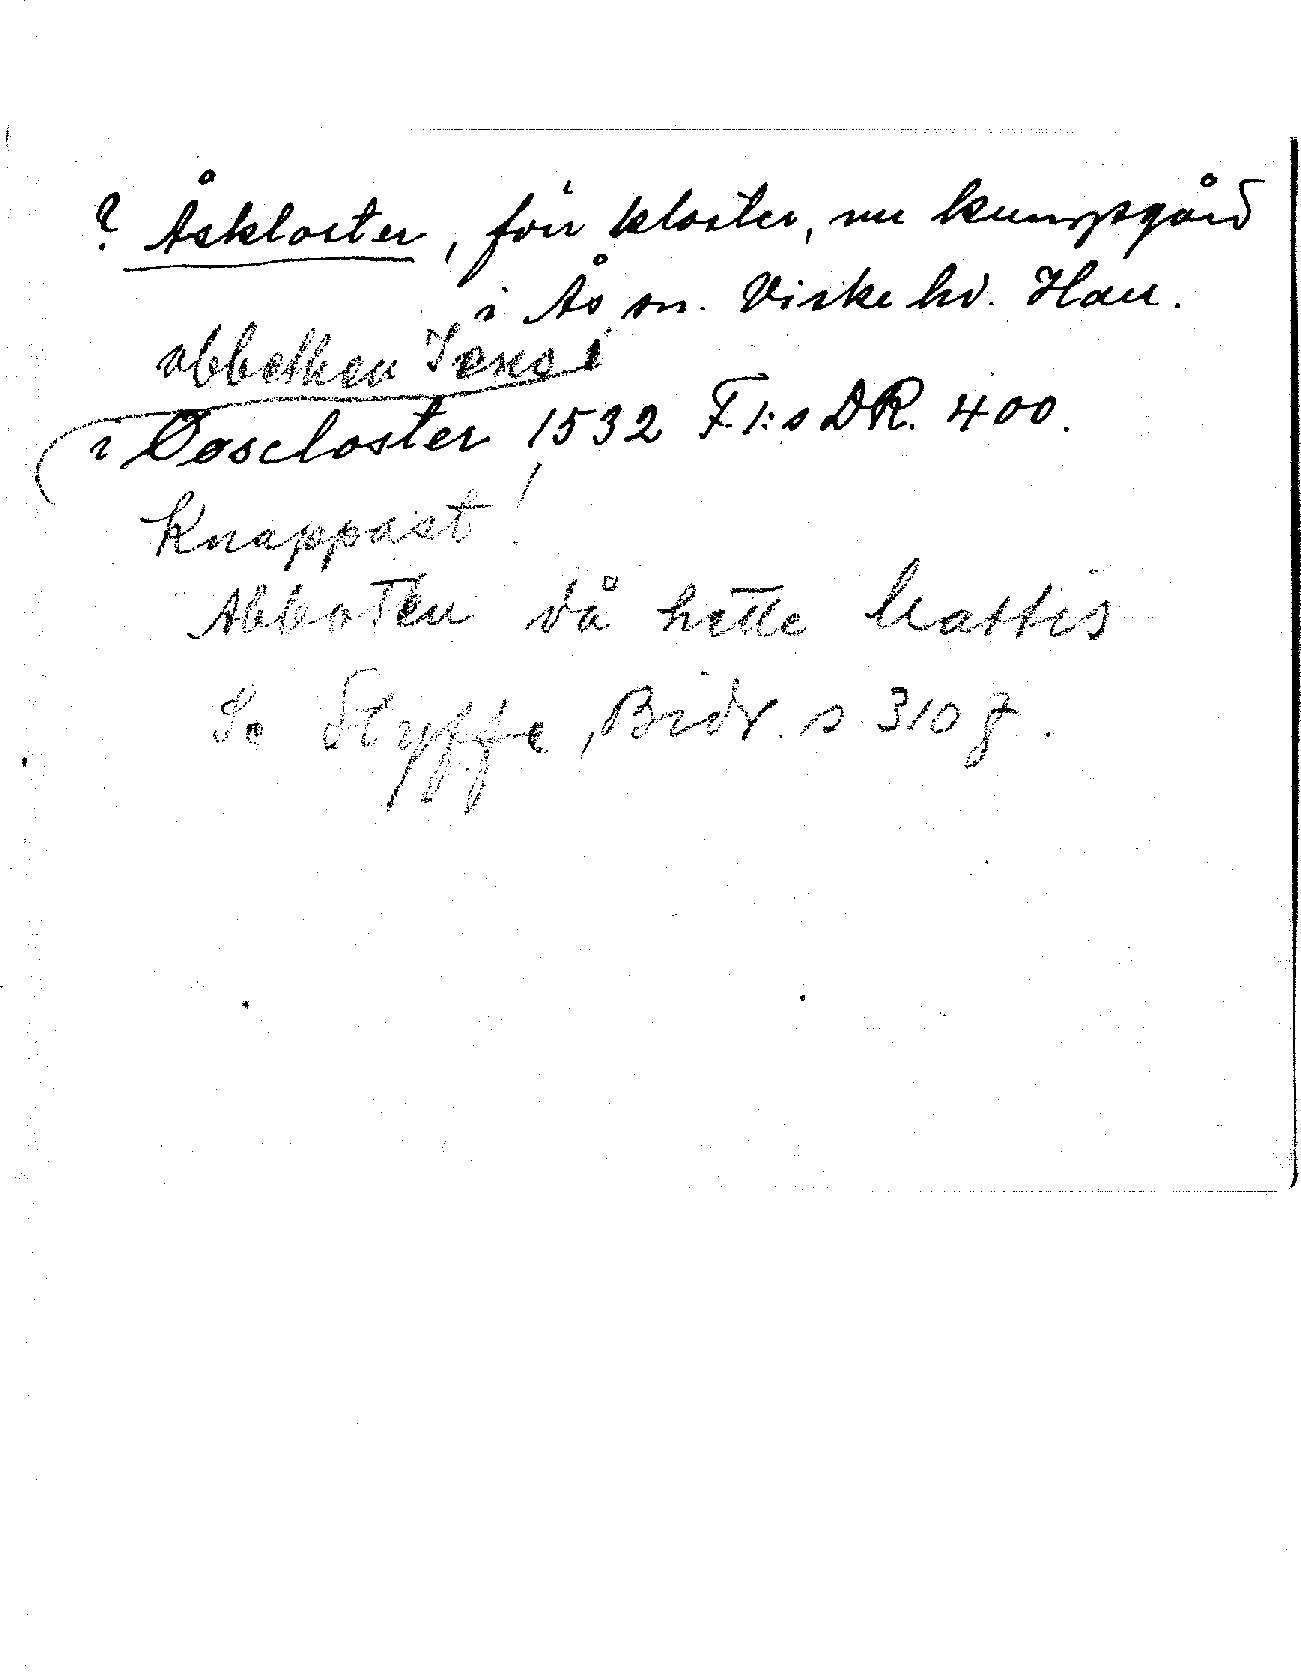 ? Åskloster, förr kloster, nu kungsgård
i Ås sn. Viske hd. Hall.
abbethen Jens i
i Ooscloster 1532 F1:s DR. 400.
Knappast!
Abboten då hette Mattis
Se Styffe, Bidr. s 310 f.